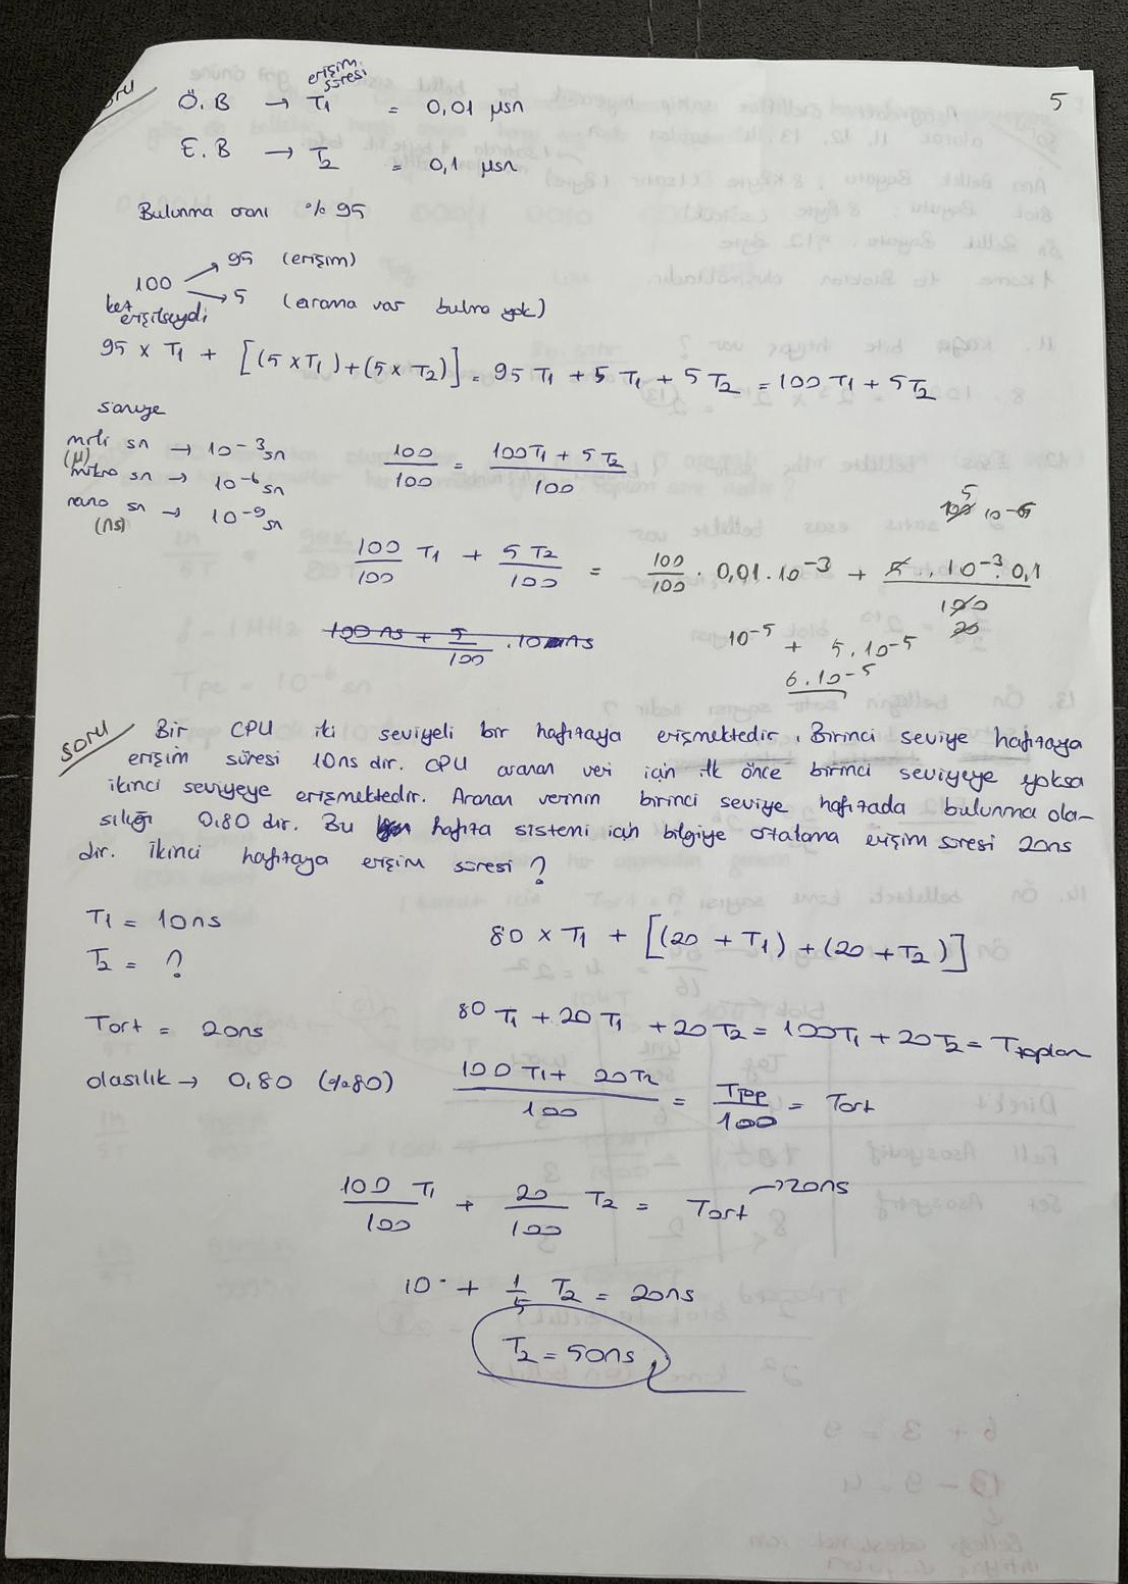 soru
erişim süresi
Ö.B → T1 = 0,01 µsn
5
E.B → T2 = 0,1 µsn
Bulunma oranı % 95
100
95 (erişim)
5 (arama var bulma yok)
kez erişilseydi
95 × T1 + [(5 × T1) + (5 × T2)] = 95 T1 + 5 T1 + 5 T2 = 100 T1 + 5T2
saniye
mili sn → 10⁻³ sn
(µ)
mikro sn → 10⁻⁶ sn
nano sn → 10⁻⁹ sn
(ns)
100/100 = (100T1 + 5T2)/100
5
100 10⁻⁵
100/100 T1 + 5T2/100 = 100/100 . 0,01 . 10⁻³ + 5 . 10⁻³ . 0,1
100
20
100 ns + 5/100 . 10 ns
10⁻⁵ + 5 . 10⁻⁵
6 . 10⁻⁵
soru Bir CPU iki seviyeli bir hafızaya erişmektedir. Birinci seviye hafızaya
erişim süresi 10ns dir. CPU aranan veri için ilk önce birinci seviyeye yoksa
ikinci seviyeye erişmektedir. Aranan verinin birinci seviye hafızada bulunma ola-
sılığı 0.80 dir. Bu hafıza sistemi için bilgiye ortalama erişim süresi 20ns
dir. ikinci hafızaya erişim süresi ?
T1 = 10ns
80 × T1 + [(20 + T1) + (20 + T2)]
T2 = ?
Tort = 20ns
80 T1 + 20 T1 + 20 T2 = 100T1 + 20T2 = Ttoplam
olasılık → 0,80 (%80)
(100 T1 + 20T2)/100 = Ttop/100 = Tort
100/100 T1 + 20/100 T2 = Tort → 20ns
10 + 1/5 T2 = 20ns
T2 = 50ns